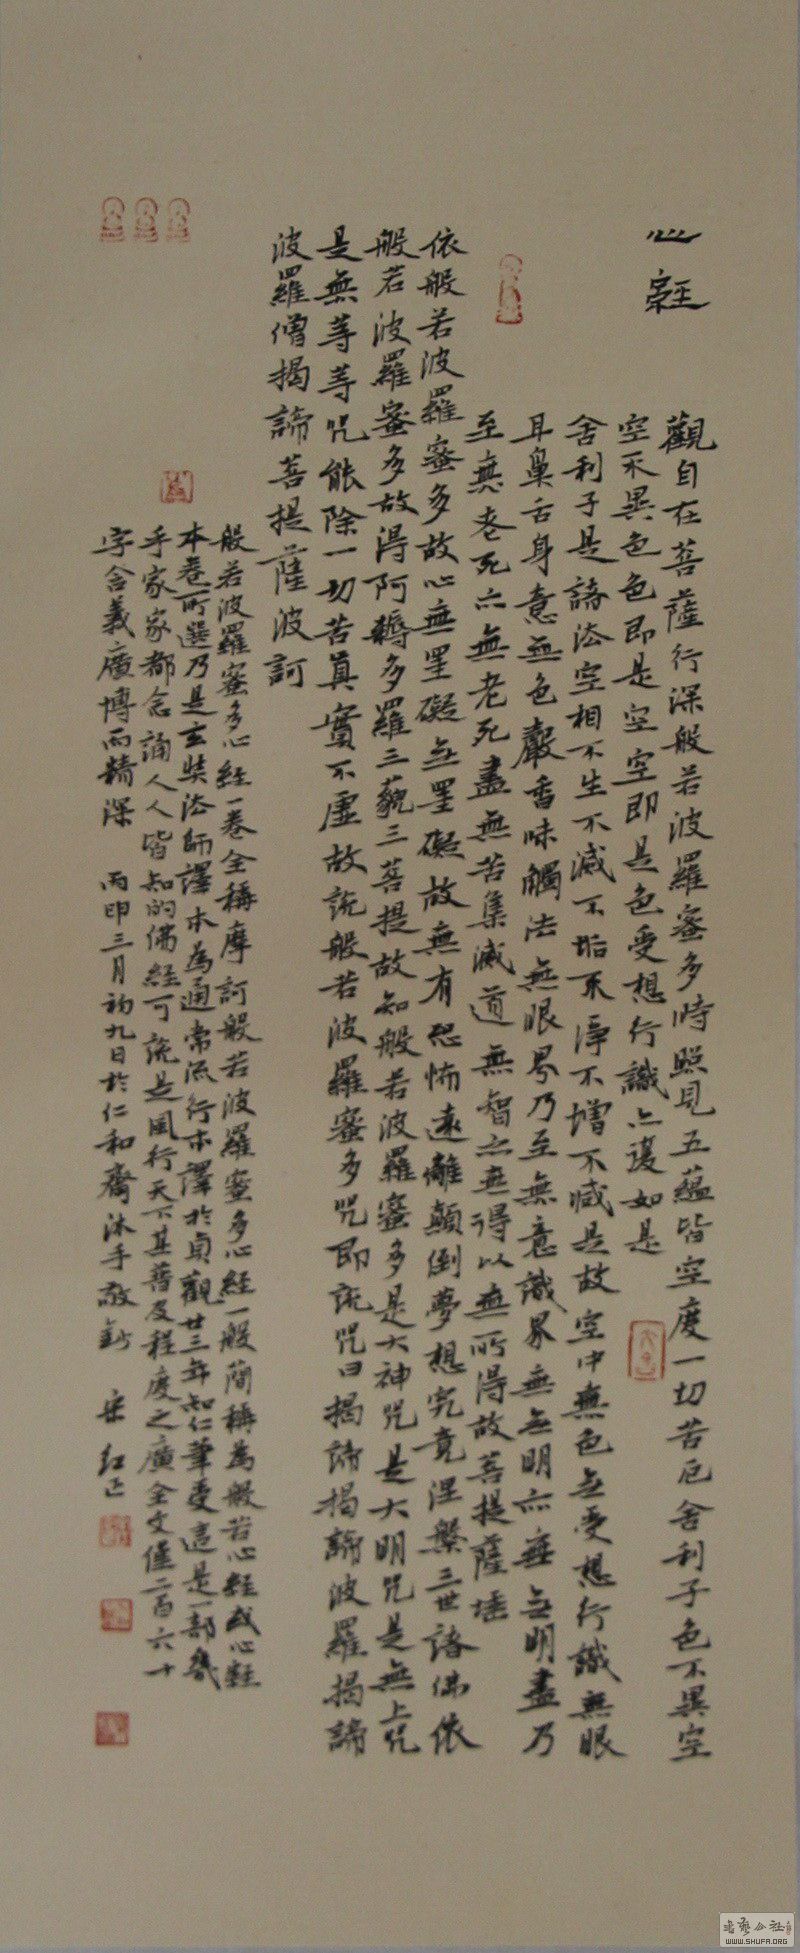 心經
觀自在菩薩行深般若波羅蜜多時照見五蘊皆空度一切苦厄舍利子色不異空
空不異色色即是空空即是色受想行識亦復如是
舍利子是諸法空相不生不滅不垢不淨不增不減是故空中無色無受想行識無眼
耳鼻舌身意無色聲香味觸法無眼界乃至無意識界無無明亦無無明盡乃
至無老死亦無老死盡無苦集滅道無智亦無得以無所得故菩提薩埵
依般若波羅蜜多故心無罣礙無罣礙故無有恐怖遠離顛倒夢想究竟涅槃三世諸佛依
般若波羅蜜多故得阿耨多羅三藐三菩提故知般若波羅蜜多是大神咒是大明咒是無上咒
是無等等咒能除一切苦真實不虛故說般若波羅蜜多咒即說咒曰揭諦揭諦波羅揭諦
波羅僧揭諦菩提薩波訶
般若波羅蜜多心經一卷全稱摩訶般若波羅蜜多心經一般簡稱為般若心經或心經
本卷所選乃是玄奘法師譯本為通常流行本譯於貞觀廿三年知仁筆受這是一部幾
乎家家都念誦人人皆知的佛經可說是風行天下其普及程度之廣全文僅二百六十
字含義廣博而精深 丙申三月初九日於仁和齋沐手敬鈔 宋紅正
書藝公社
WWW.SHUFA.ORG